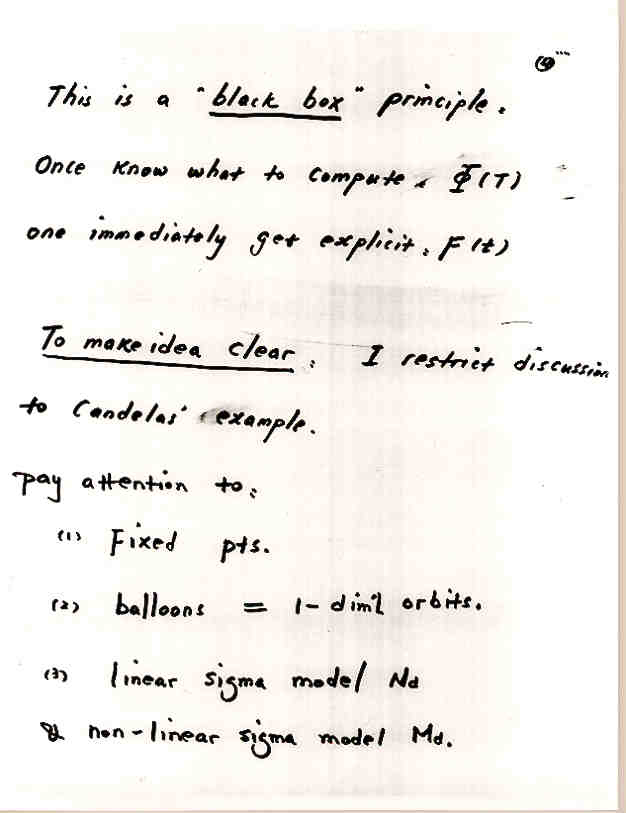 This is a "black box" principle.
Once know what to compute, Φ(T)
one immediately get explicit, F(t)
To make idea clear, I restrict discussion
to Candelas' example.
pay attention to:
(1) Fixed pts.
(2) balloons = 1-dim'l orbits.
(3) linear sigma model Nd
& non-linear sigma model Md.